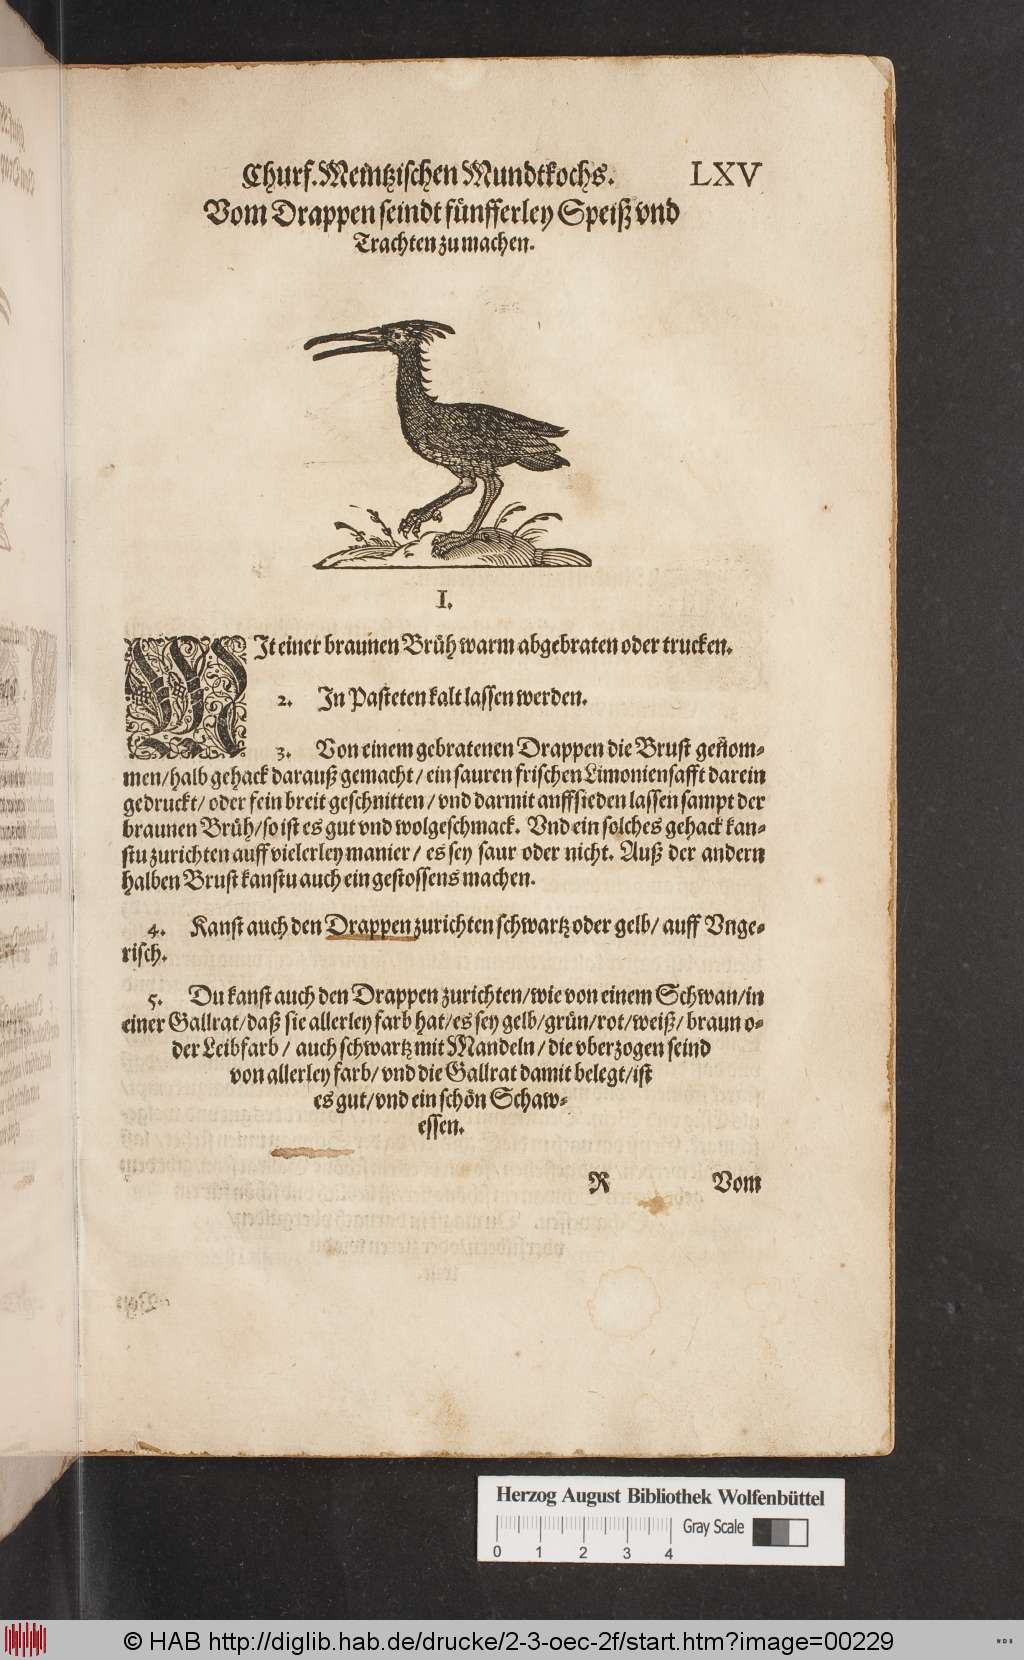 Churf. Meintzischen Mundtkochs. LXV
Vom Drappen seindt fünfferley Speiß vnd
Trachten zu machen.
I.
MIt einer braunen Brüh warm abgebraten oder trucken.
2. In Pasteten kalt lassen werden.
3. Von einem gebratenen Drappen die Brust genom-
men/ halb gehack darauß gemacht/ ein sauren frischen Limoniensafft darein
gedruckt/ oder fein breit geschnitten/ vnd darmit auffsieden lassen sampt der
braunen Brüh/ so ist es gut vnd wolgeschmack. Vnd ein solches gehack kan-
stu zurichten auff vielerley manier/ es sey saur oder nicht. Auß der andern
halben Brust kanstu auch ein gestossens machen.
4. Kanst auch den Drappen zurichten schwartz oder gelb/ auff Vnge-
risch.
5. Du kanst auch den Drappen zurichten/ wie von einem Schwan/ in
einer Gallrat/ daß sie allerley farb hat/ es sey gelb/ grün/ rot/ weiß/ braun o-
der Leibfarb/ auch schwartz mit Mandeln/ die vberzogen seind
von allerley farb/ vnd die Gallrat damit belegt/ ist
es gut/ vnd ein schön Schaw-
essen.
R Vom
Herzog August Bibliothek Wolfenbüttel
Gray Scale
0 1 2 3 4
© HAB http://diglib.hab.de/drucke/2-3-oec-2f/start.htm?image=00229